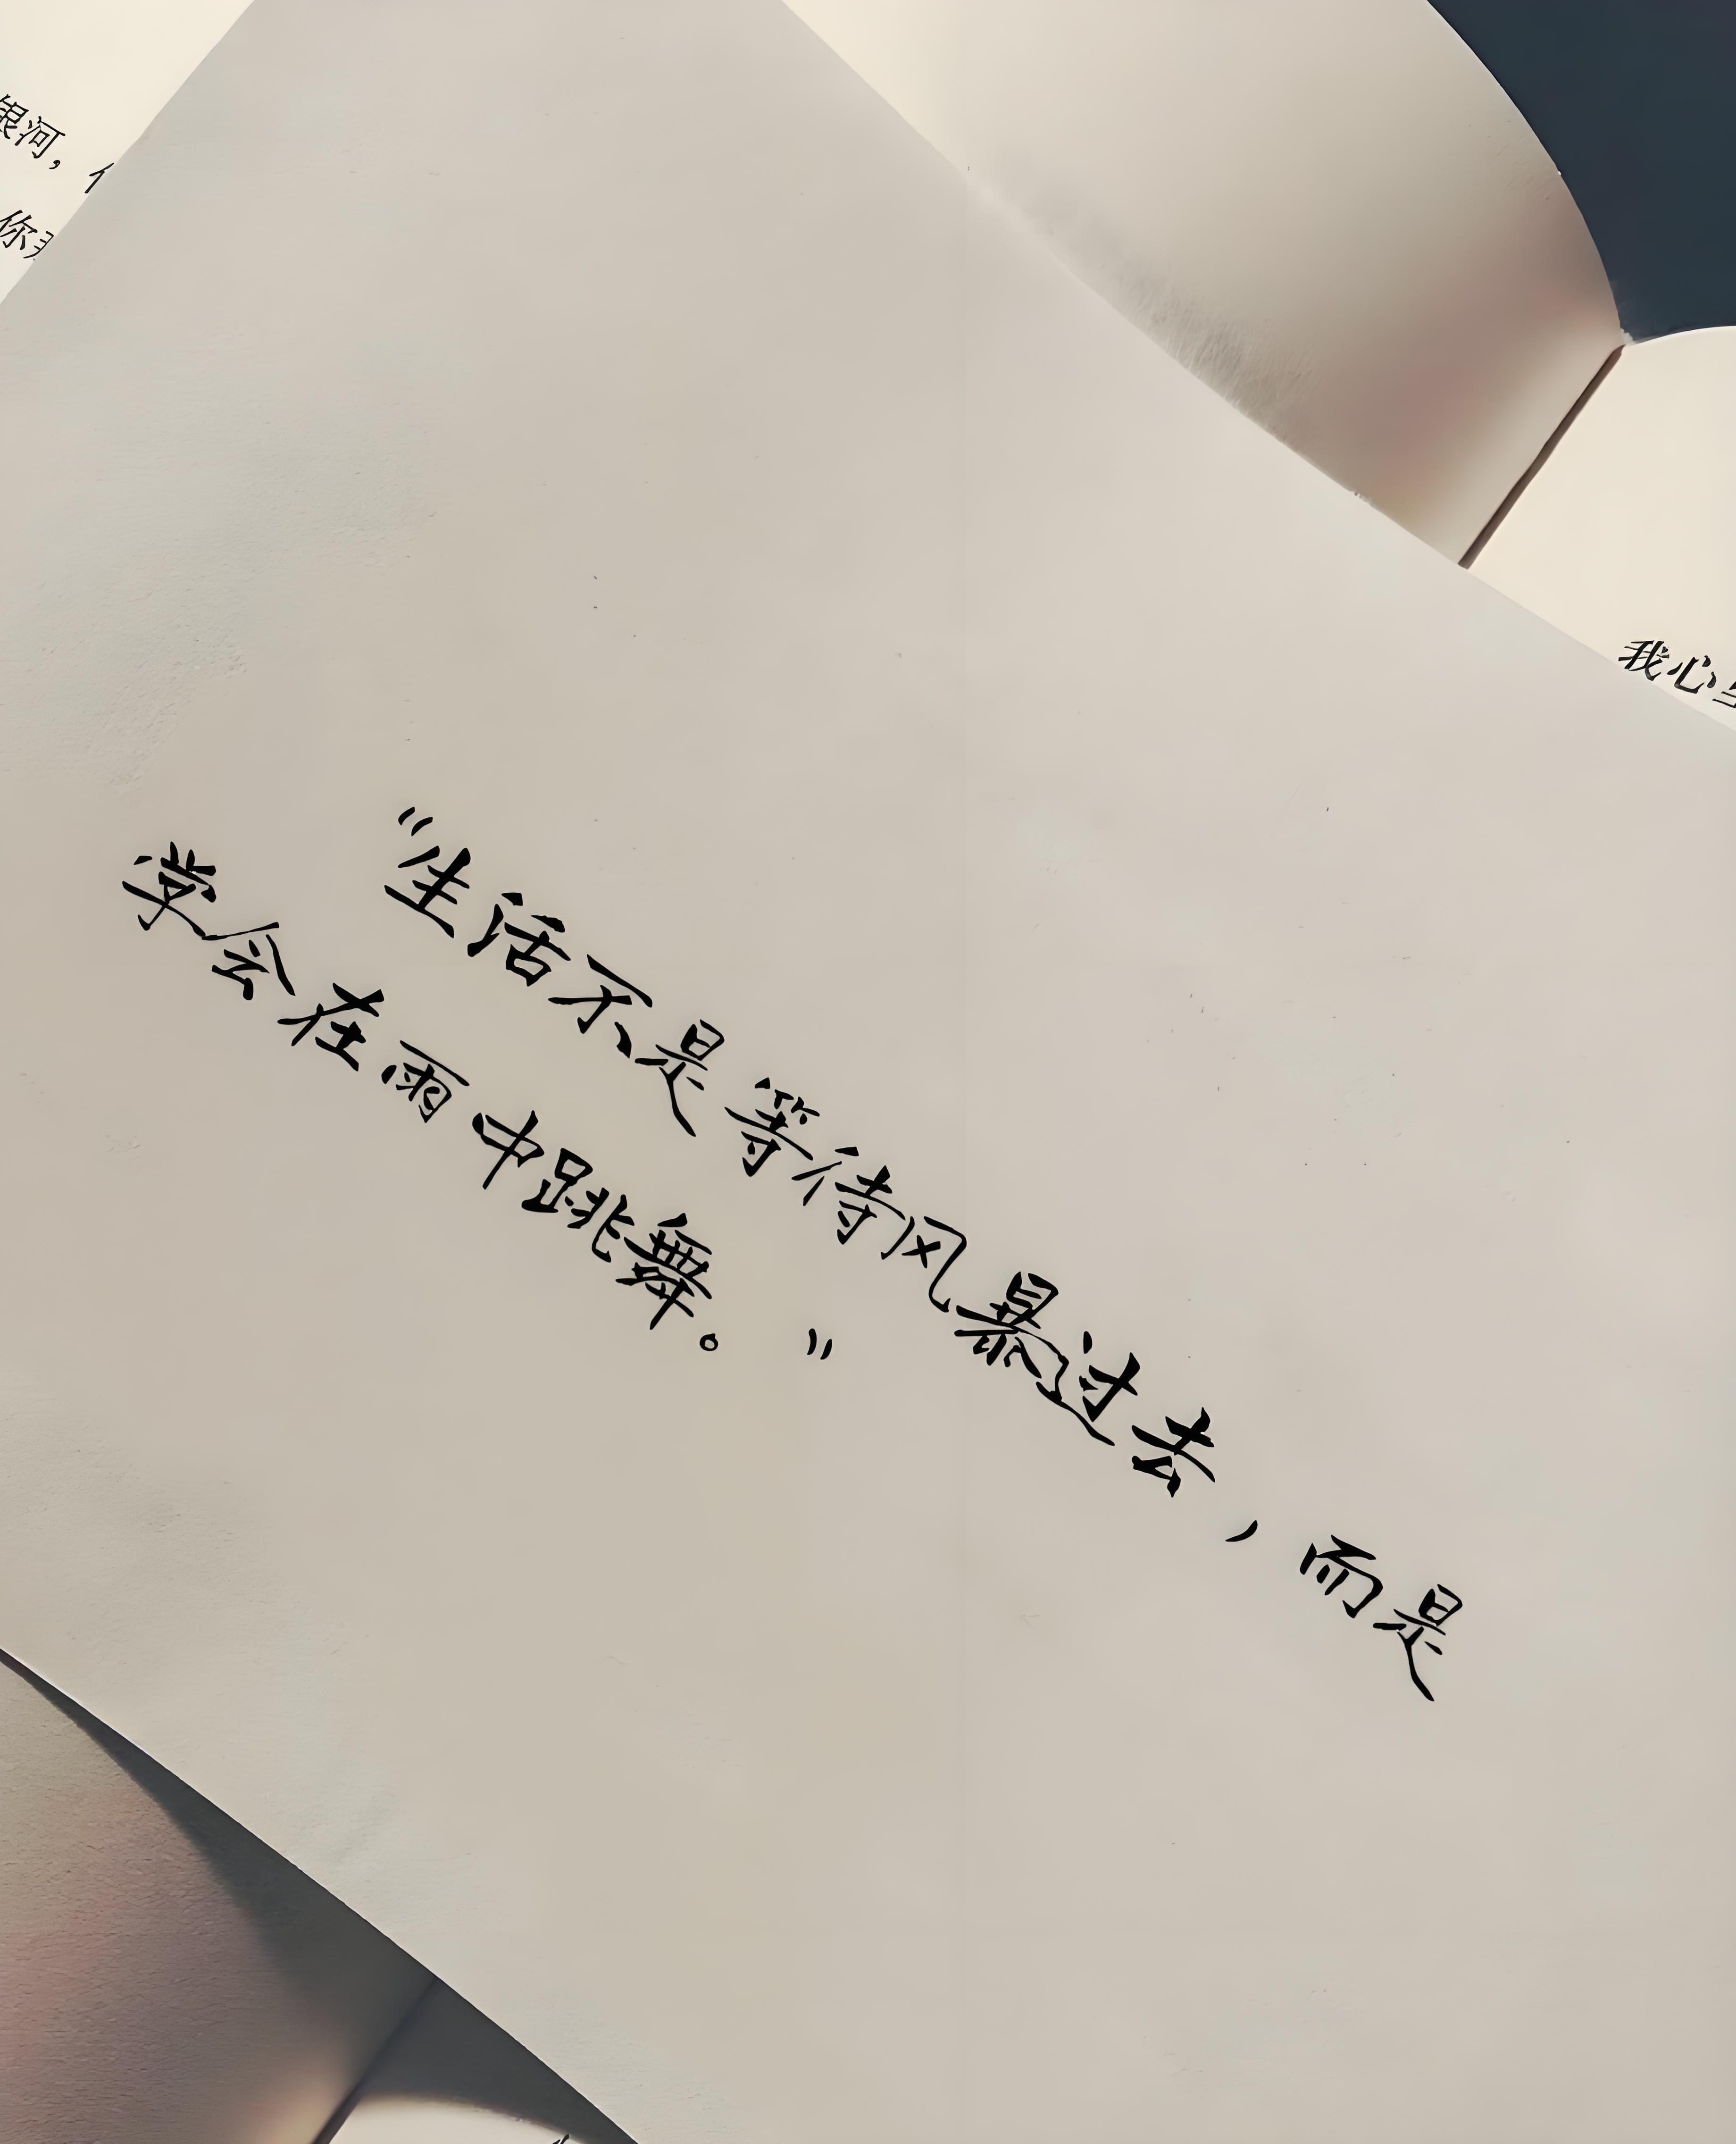 银河，
你
我心
“生活不是等待风暴过去，而是
学会在雨中跳舞。”